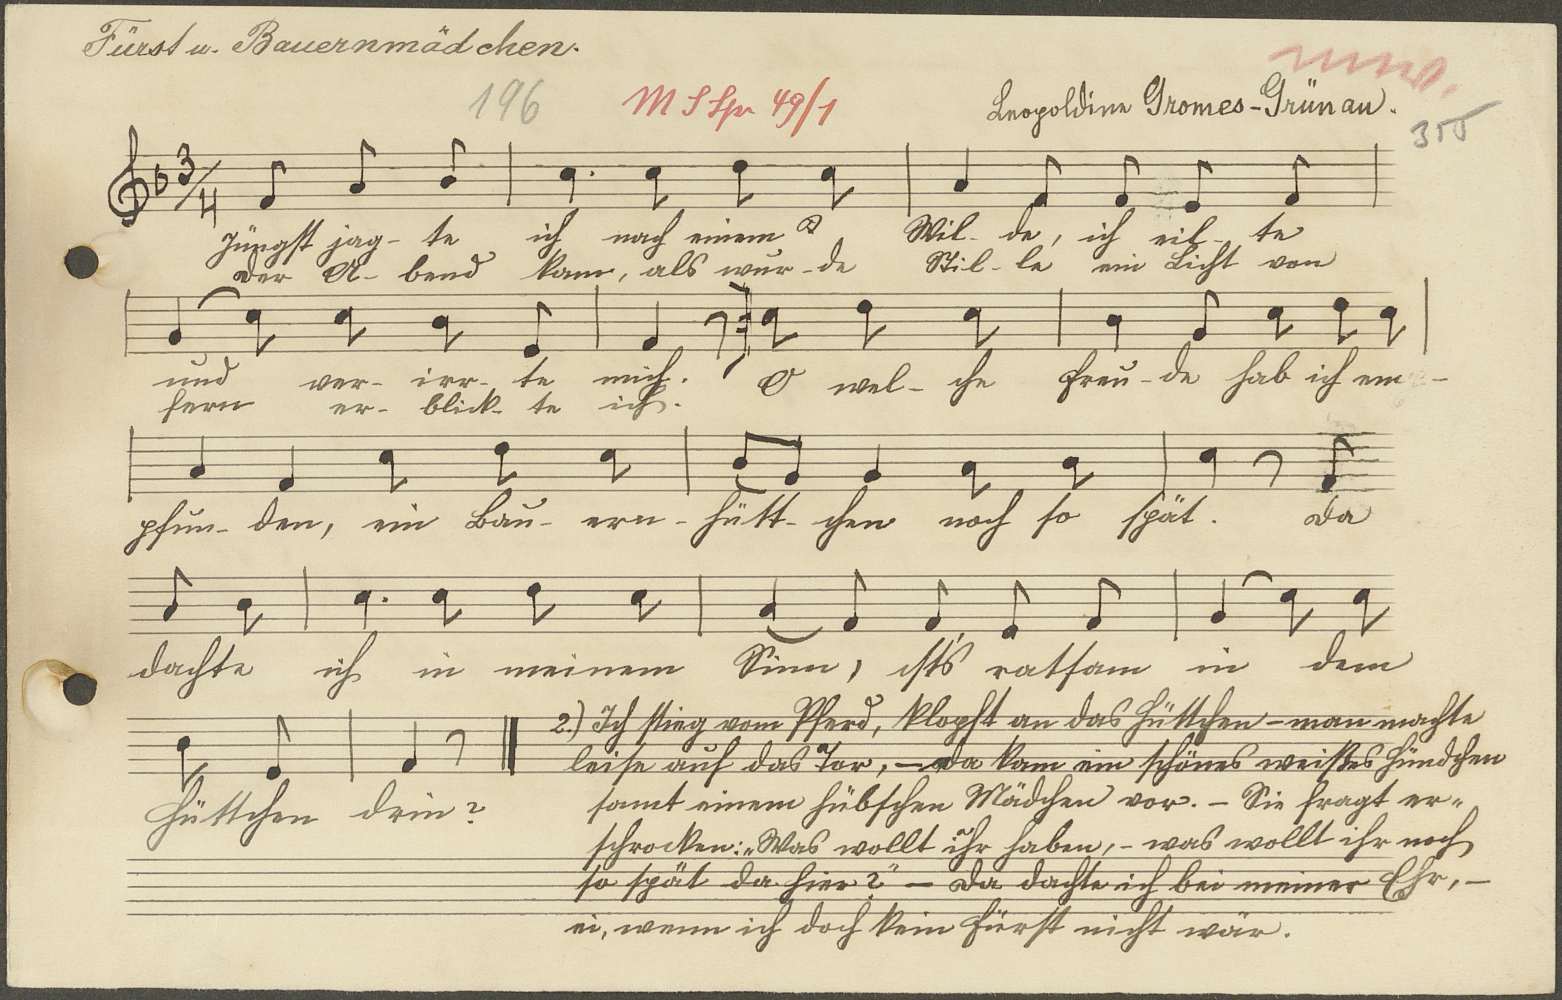 Fürst u. Bauernmädchen.
196 M S Spr 49/1 Leopoldine Gromes-Grünau.
355
3/4
Jüngst jag- te ich nach einem Wil- de, ich eil- te
Der A- bend kam, als wur-de Stil- le ein Licht von
und ver- irr- te mich. O wel- che Freu-de hab ich em-
fern er- blick- te ich.
pfun- den, ein Bau- ern- hütt- chen noch so spät. Da
dachte ich in meinem Sinn, ists ratsam in dem
Hüttchen drin?
2.) Ich stieg vom Pferd, klopft an das Hüttchen – man machte
leise auf das Tor, – da kam ein schönes weißes Hündchen
samt einem hübschen Mädchen vor. – Sie fragt er-
schrocken: „Was wollt ihr haben, – was wollt ihr noch
so spät da hier?" – Da dachte ich bei meiner Ehr, –
ei, wenn ich doch kein Fürst nicht wär.